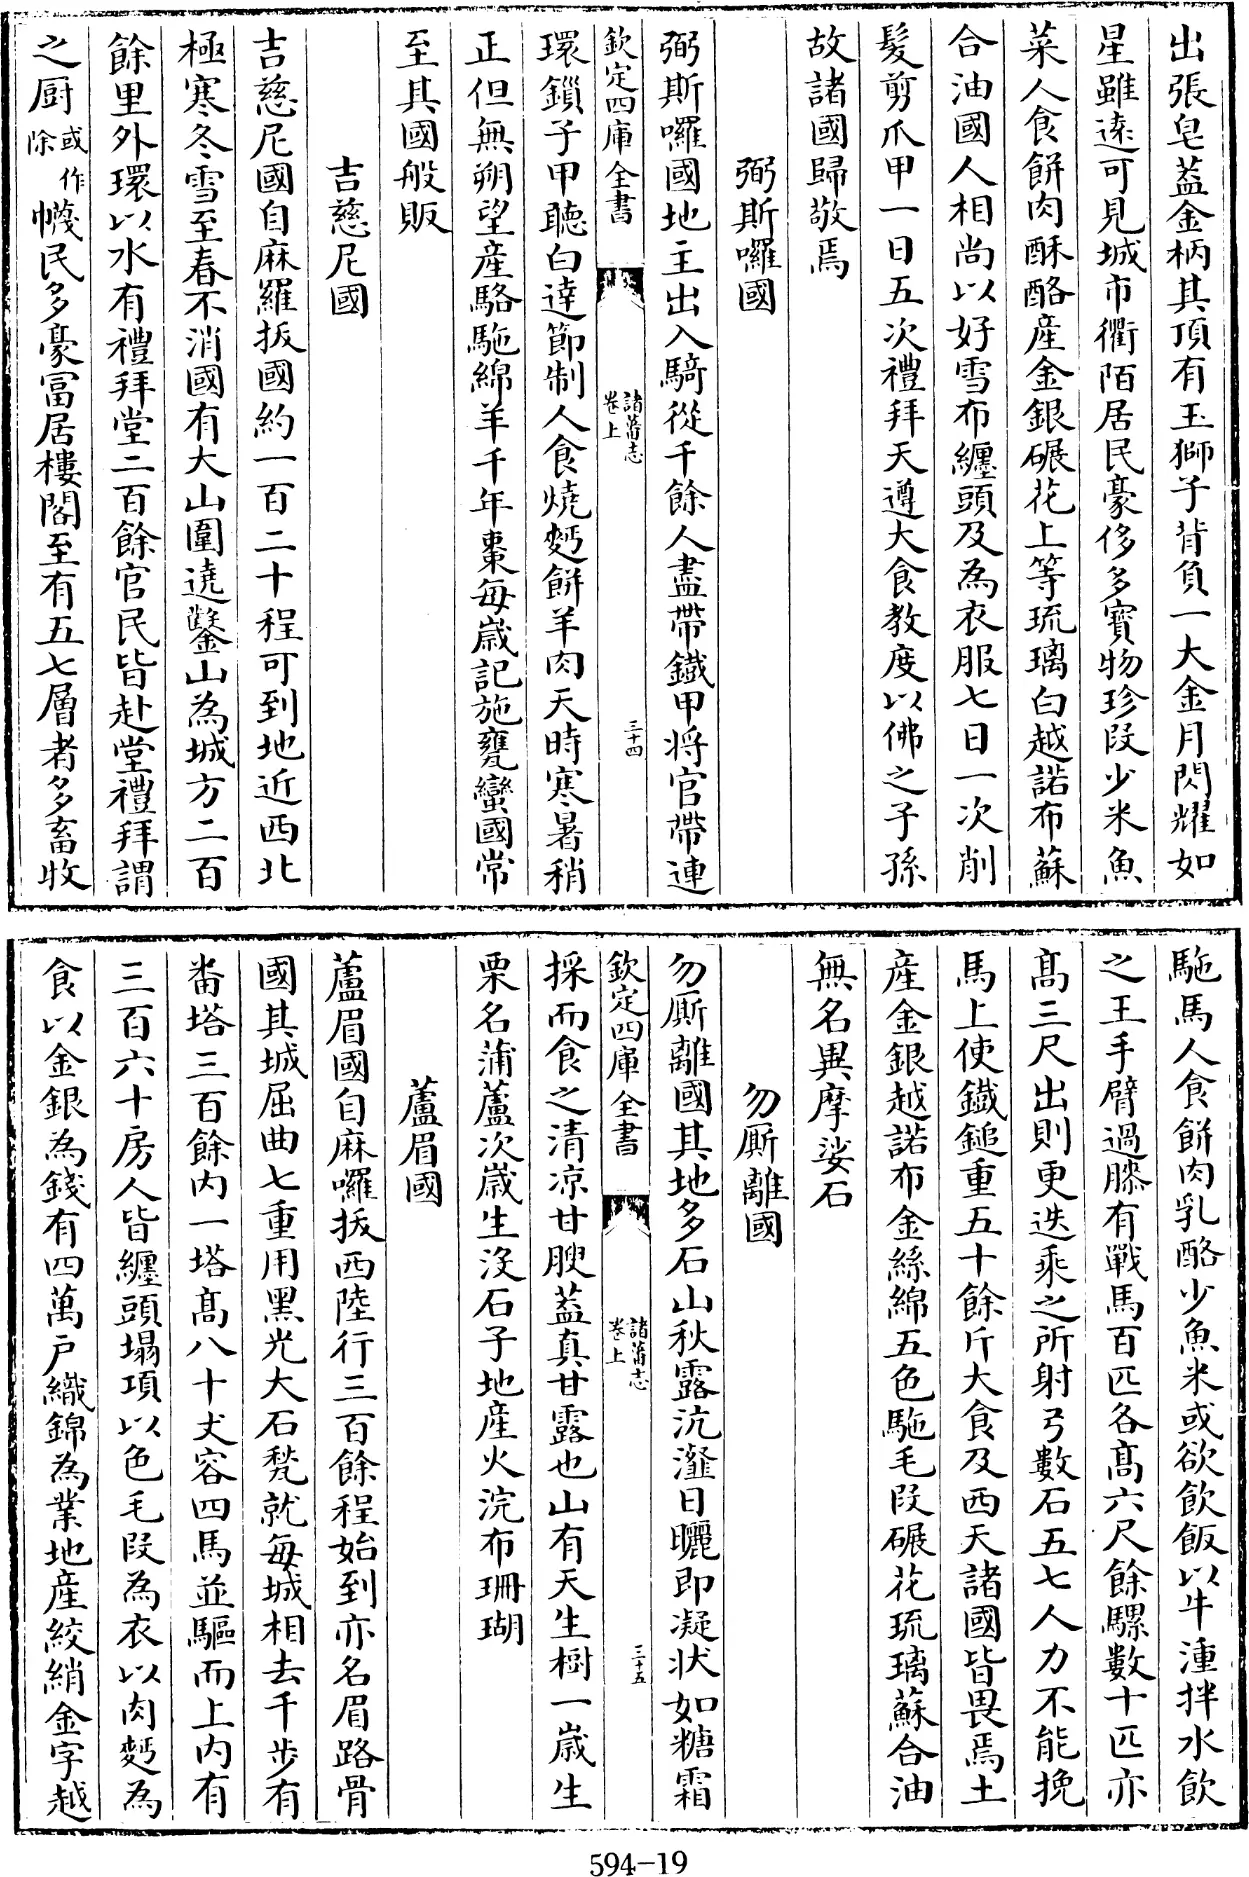 出張皂葢金柄其頂有玉獅子背負一大金月閃耀如
星雖逺可見城市衢陌居民豪侈多寳物珍段少米魚
菜人食餅肉酥酪産金銀碾花上等琉璃白越諾布蘇
合油國人相尚以好雪布纏頭及為衣服七日一次削
髮剪爪甲一日五次禮拜天遵大食教度以佛之子孫
故諸國歸敬焉
弼斯囉國
弼斯囉國地主出入騎從千餘人盡帶鐵甲将官帶連
欽定四庫全書
諸蕃志
卷上
三十四
環鎻子甲聽白達節制人食燒麪餅羊肉天時寒暑稍
正但無朔望産駱駞綿羊千年棗毎歳記施甕蠻國常
至其國般販
吉慈尼國
吉慈尼國自麻羅拔國約一百二十程可到地近西北
極寒冬雪至春不消國有大山圍遶鑿山為城方二百
餘里外環以水有禮拜堂二百餘官民皆赴堂禮拜謂
之厨或作除幭民多豪富居樓閣至有五七層者多畜收
駞馬人食餅肉乳酪少魚米或欲飲飯以牛湩拌水飲
之王手臂過膝有戰馬百匹各髙六尺餘騾數十匹亦
髙三尺出則更迭乘之所射弓數石五七人力不能挽
馬上使鐵鎚重五十餘斤大食及西天諸國皆畏焉土
産金銀越諾布金絲綿五色駞毛段碾花琉璃蘇合油
無名異摩娑石
勿厮離國
勿厮離國其地多石山秋露沆瀣日曬即凝状如糖霜
欽定四庫全書
諸蕃志
卷上
三十五
採而食之清凉甘腴葢真甘露也山有天生樹一歳生
栗名蒲蘆次歳生没石子地産火浣布珊瑚
蘆眉國
蘆眉國自麻囉拔西陸行三百餘程始到亦名眉路骨
國其城屈曲七重用黑光大石甃就毎城相去千步有
畨塔三百餘内一塔髙八十丈容四馬並驅而上内有
三百六十房人皆纏頭塌項以色毛段為衣以肉麪為
食以金銀為錢有四萬户織錦為業地産絞綃金字越
594-19